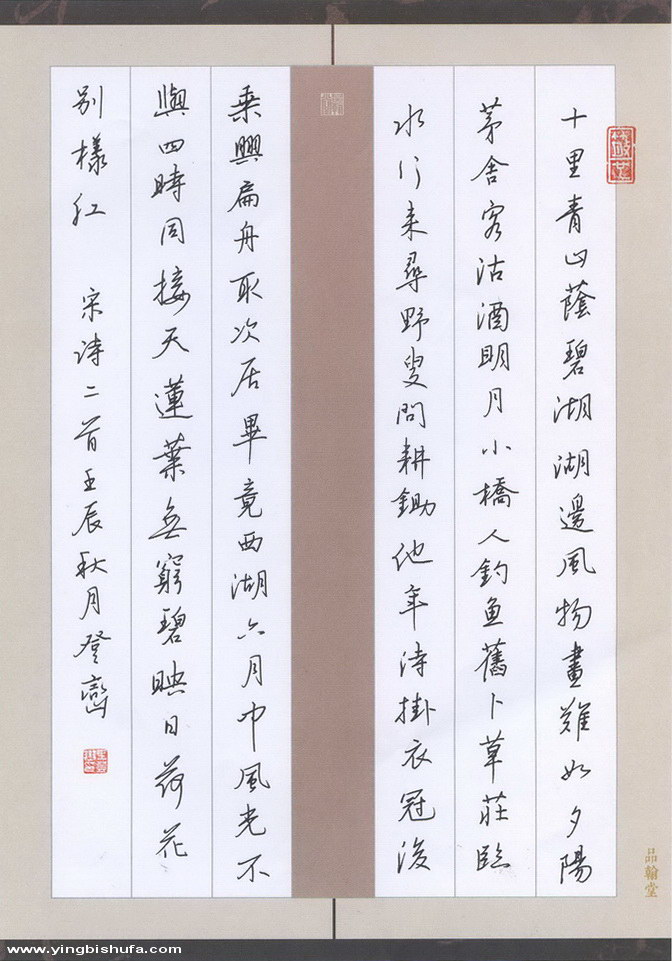 十里青山蔭碧湖湖邊風物畫難如夕陽
茅舍客沽酒明月小橋人釣魚舊卜草莊臨
水行来尋野叟問耕鋤他年待掛衣冠後
乗興扁舟取次居畢竟西湖六月中風光不
與四時同接天蓮葉無窮碧映日荷花
別樣紅 宋詩二首壬辰秋月登巒
品翰堂
www.yingbishufa.com